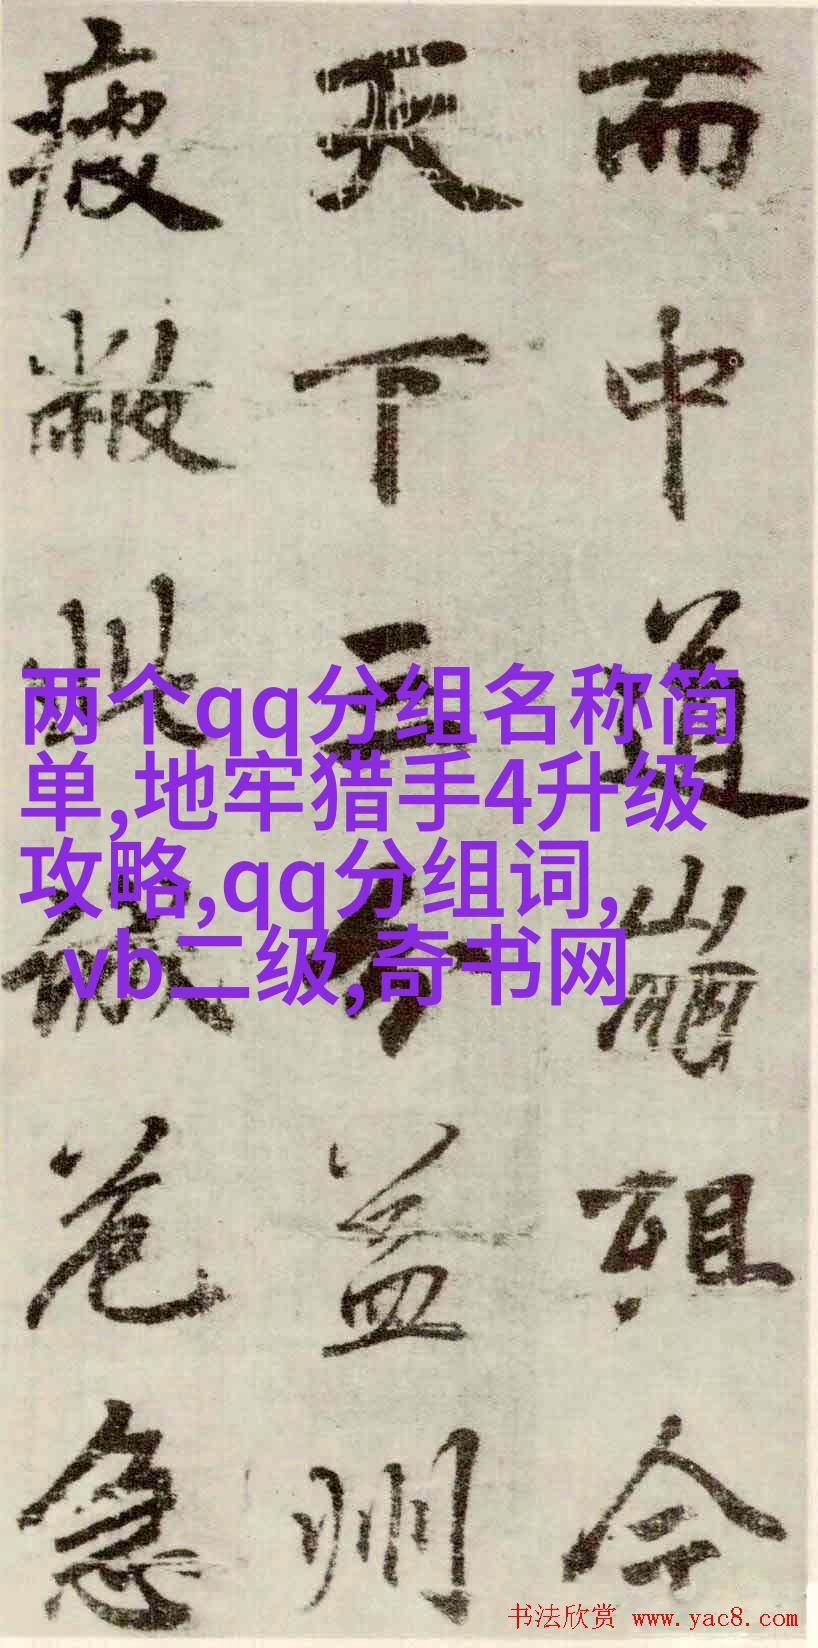 而中道崩殂今
天下三分益州
疲敝此誠危急
两个qq分组名称简
单,地牢猎手4升级
攻略,qq分组词,
vb二级,奇书网
书法欣赏 www.yac8.com